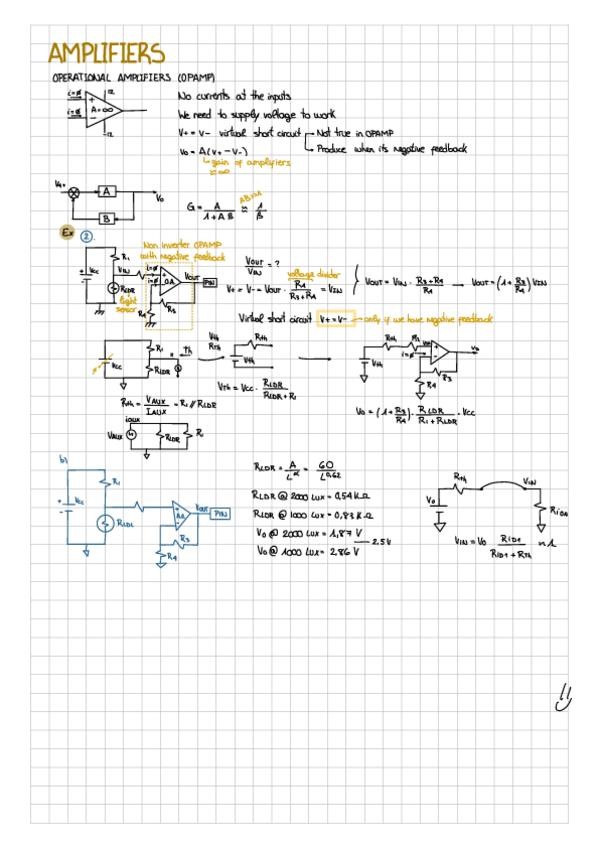 AMPLIFIERS
OPERATIONAL AMPLIFIERS (OPAMP)
i=ø
i=ø
+
-
A=∞
No currents at the inputs
We need to supply voltage to work
V+ = V- virtual short circuit
Not true in OPAMP
Produce when its negative feedback
Vo = A(V+ - V-)
gain of amplifiers
≈∞
A
B
Vo
G = A / 1+AB ≈ 1 / B
AB>>1
Ex 2.
Non inverter OPAMP
with negative feedback
Vcc
R1
VIN
RLDR
light
sensor
i=ø
i=ø
OA
R3
R4
VOUT
PIN
VOUT / VIN = ?
voltage divider
V+ = V- = VOUT · R4 / R3+R4 = VIN
VOUT = VIN · R3+R4 / R4 → VOUT = (1 + R3 / R4) VIN
Virtual short circuit V+=V- only if we have negative feedback
Vcc
R1
RLDR
Th
Vth
Rth
Rth
Vth
VTH = Vcc · RLDR / RLDR+R1
Rth
Vth
i=ø
R3
R4
Vo
Rth = VAUX / IAUX = R1 // RLDR
Vo = (1 + R3 / R4) · RLDR / R1 + RLDR · Vcc
iaux
VAUX
RLDR
R1
b)
Vcc
R1
R3
R4
VOUT
PIN
RLDR = A / L^α = 60 / L^0,62
RLDR @ 2000 LUX = 0,54 KΩ
RLDR @ 1000 LUX = 0,83 KΩ
Vo @ 2000 LUX = 1,87 V
Vo @ 1000 LUX = 2,86 V
2.5V
Rth
VIN
Vo